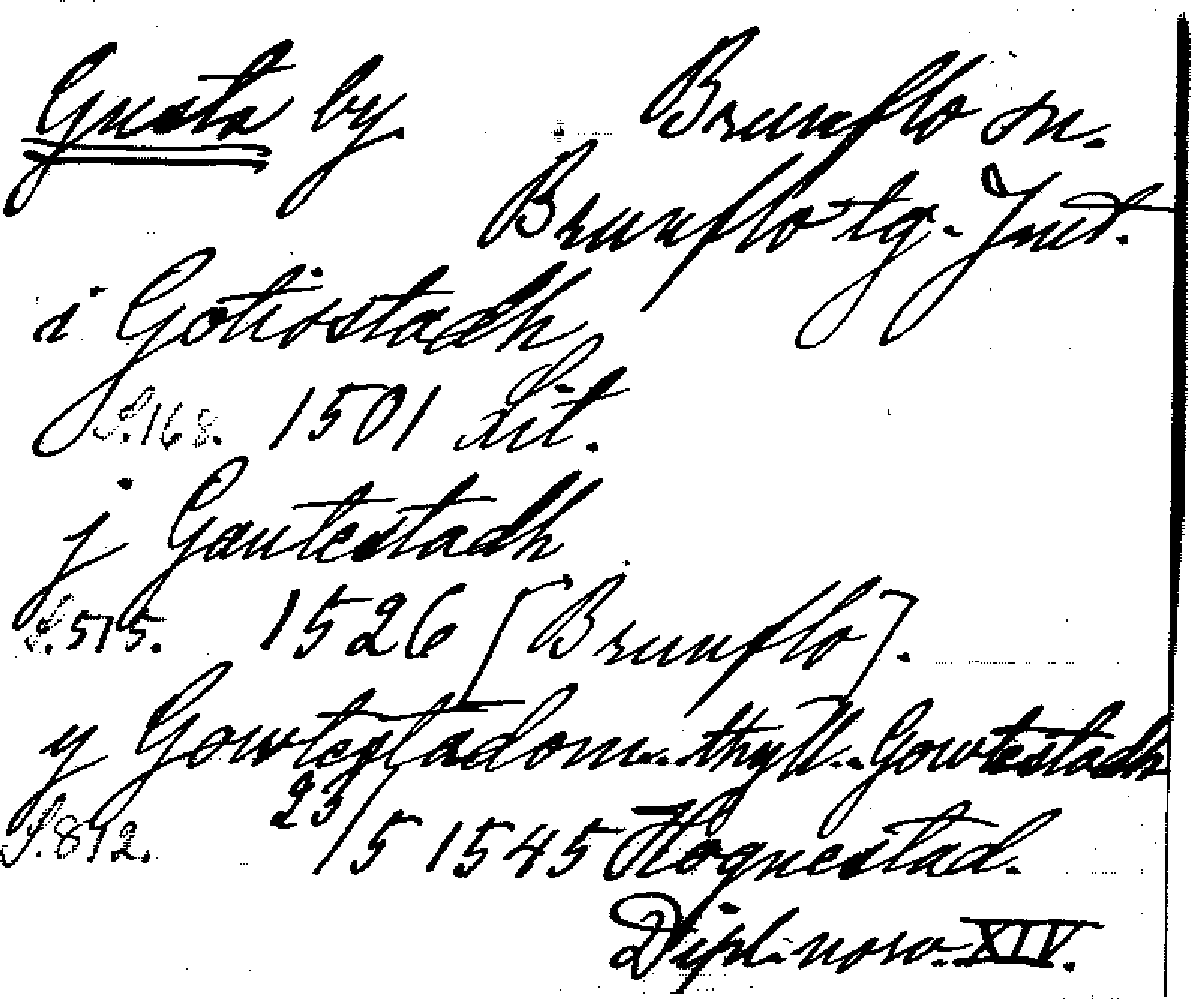 Gusta by. Brunflo sn.
Brunflo tg. Jmtl.
i Gotistadh
S. 168. 1501 Lit.
j Gautestadh
S. 515. 1526 [Brunflo].
y Gowtestadom... thyll... Gowtestadh
S. 892. 23/5 1545 Hognestad.
Dipl. norv. XIV.